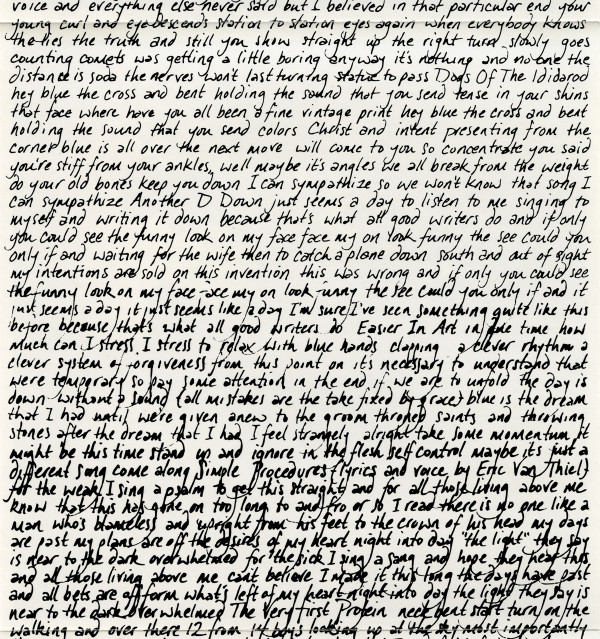 voice and everything else never said but I believed in that particular end your
young curl and eye descends station to station eyes again when everybody knows
the lies the truth and still you show straight up the right turn slowly goes
counting comets was getting a little boring anyway it's nothing and no one the
distance is soda the nerves won't last turning statue to pass Dogs Of The Ididarod
hey blue the cross and bent holding the sound that you send tense in your shins
that face where have you all been a fine vintage print hey blue the cross and bent
holding the sound that you send colors Christ and intent presenting from the
corner blue is all over the next move will come to you so concentrate you said
you're stiff from your ankles, well maybe it's angles we all break from the weight
do your old bones keep you down I can sympathize so we won't know that song I
can sympathize Another D Down just seems a day to listen to me singing to
myself and writing it down because that's what all good writers do and if only
you could see the funny look on my face face my on look funny the see could you
only if and waiting for the wife then to catch a plane down south and out of sight
my intentions are sold on this invention this was wrong and if only you could see
the funny look on my face face my on look funny the see could you only if and it
just seems a day it just seems like a day I'm sure I've seen something quite like this
before because that's what all good writers do Easier In Art in due time how
much can I stress I stress to relax with blue hands clapping a clever rhythm a
clever system of forgiveness from this point on it's necessary to understand that
were temporary so pay some attention in the end if we are to unfold the day is
down without a sound (all mistakes are the take fixed by grace) blue is the dream
that I had until we're given anew to the groom throned saints and throwing
stones after the dream that I had I feel strangely alright take some momentum it
might be this time stand up and ignore in the flesh self control maybe it's just a
different song come along Simple Procedures (lyrics and voice by Eric Van Thiel)
for the weak I sing a psalm to get this straight and for all those living above me
know that this has gone on too long to and fro or so I read there is no one like a
man who's blameless and upright from his feet to the crown of his head my days
are past my plans are off the desires of my heart night into day "the light" they say
is near to the dark overwhelmed for the sick I sing a song and hope they hear this
and all those living above me cant believe I made it this long the days have past
and all bets are off form what's left of my heart night into day the light they say is
near to the dark overwhelmed The Very First Protein neck bent start turn on the
walking and over there 12 from 14 boys looking up at the sky most importantly